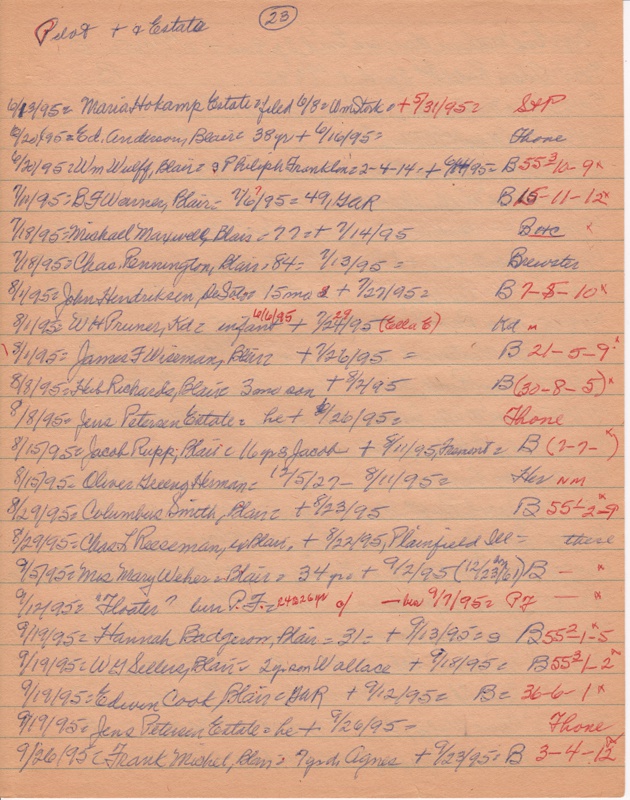 Pilot + & Estate (23)
6/13/95 = Maria Hokamp Estate = filed 6/8 = Wm Stork = + 5/31/95 = S&P
6/20/95 = Ed. Anderson, Blair = 38 yr + 6/16/95 = Thone
6/20/95 = Wm Wulff, Blair = s Philoph Franklin = 2-4-14 = + 6/ /95 = B 55-3 10-9 x
7/ /95 = B F Warner, Blair = 7/6?/95 = 49, GAR B 15-11-12 x
7/18/95 = Mishael Maxwell, Blair = 77 = + 7/14/95 BHC x
7/18/95 = Chas. Pennington, Blair = 84 = 7/13/95 = Brewster
8/1/95 = John Hendriksen, DeSoto = 15 mo s + 7/27/95 = B 7-5-10 x
8/1/95 = W H Pruner, Kd = infant 6/6/95 + 7/29/95 (Ella E) Kd
8/1/95 = James F Wiseman, Blair + 7/26/95 = B 21-5-9 x
8/3/95 = Heb Richards, Blair = 3 mo son + 8/2/95 B (30-8-5) x
8/18/95 = Jens Petersen Estate = he + /26/95 = Thone
8/15/95 = Jacob Rupp, Blair = 16 yr s Jacob + 8/11/95, Fremont = B (7-7- ) x
8/15/95 = Oliver Greeng Herman = 12/5/27 - 8/11/95 = Her NM
8/29/95 = Columbus Smoth, Blair = + 8/23/95 B 55-1-2-9 x
8/29/95 = Chas L Reeseman, w Blair, + 8/22/95, Plainfield Ill = there
9/5/95 = Mrs Mary Weher = Blair = 34 yr = + 9/2/95 (12/23/61) B - x
9/12/95 = "Floater" bur P.F. = 24 & 26 yr o/ - bur 9/7/95 = PF - x
9/19/95 = Hannah Badgerow, Blair = 31 = + 9/13/95 = s B 55-2 1-5 x
9/19/95 = W G Sellers, Blair = 2 yr son Wallace + 9/18/95 = B 55-3 1-2 x
9/19/95 = Edwin Cook, Blair = GAR + 9/12/95 = B = 36-6-1 x
9/19/95 = Jens Petersen Estate = he + 9/26/95 = Thone
9/26/95 = Frank Mishel, Blair = 7 yr d. Agnes + 9/23/95 = B 3-4-12 x